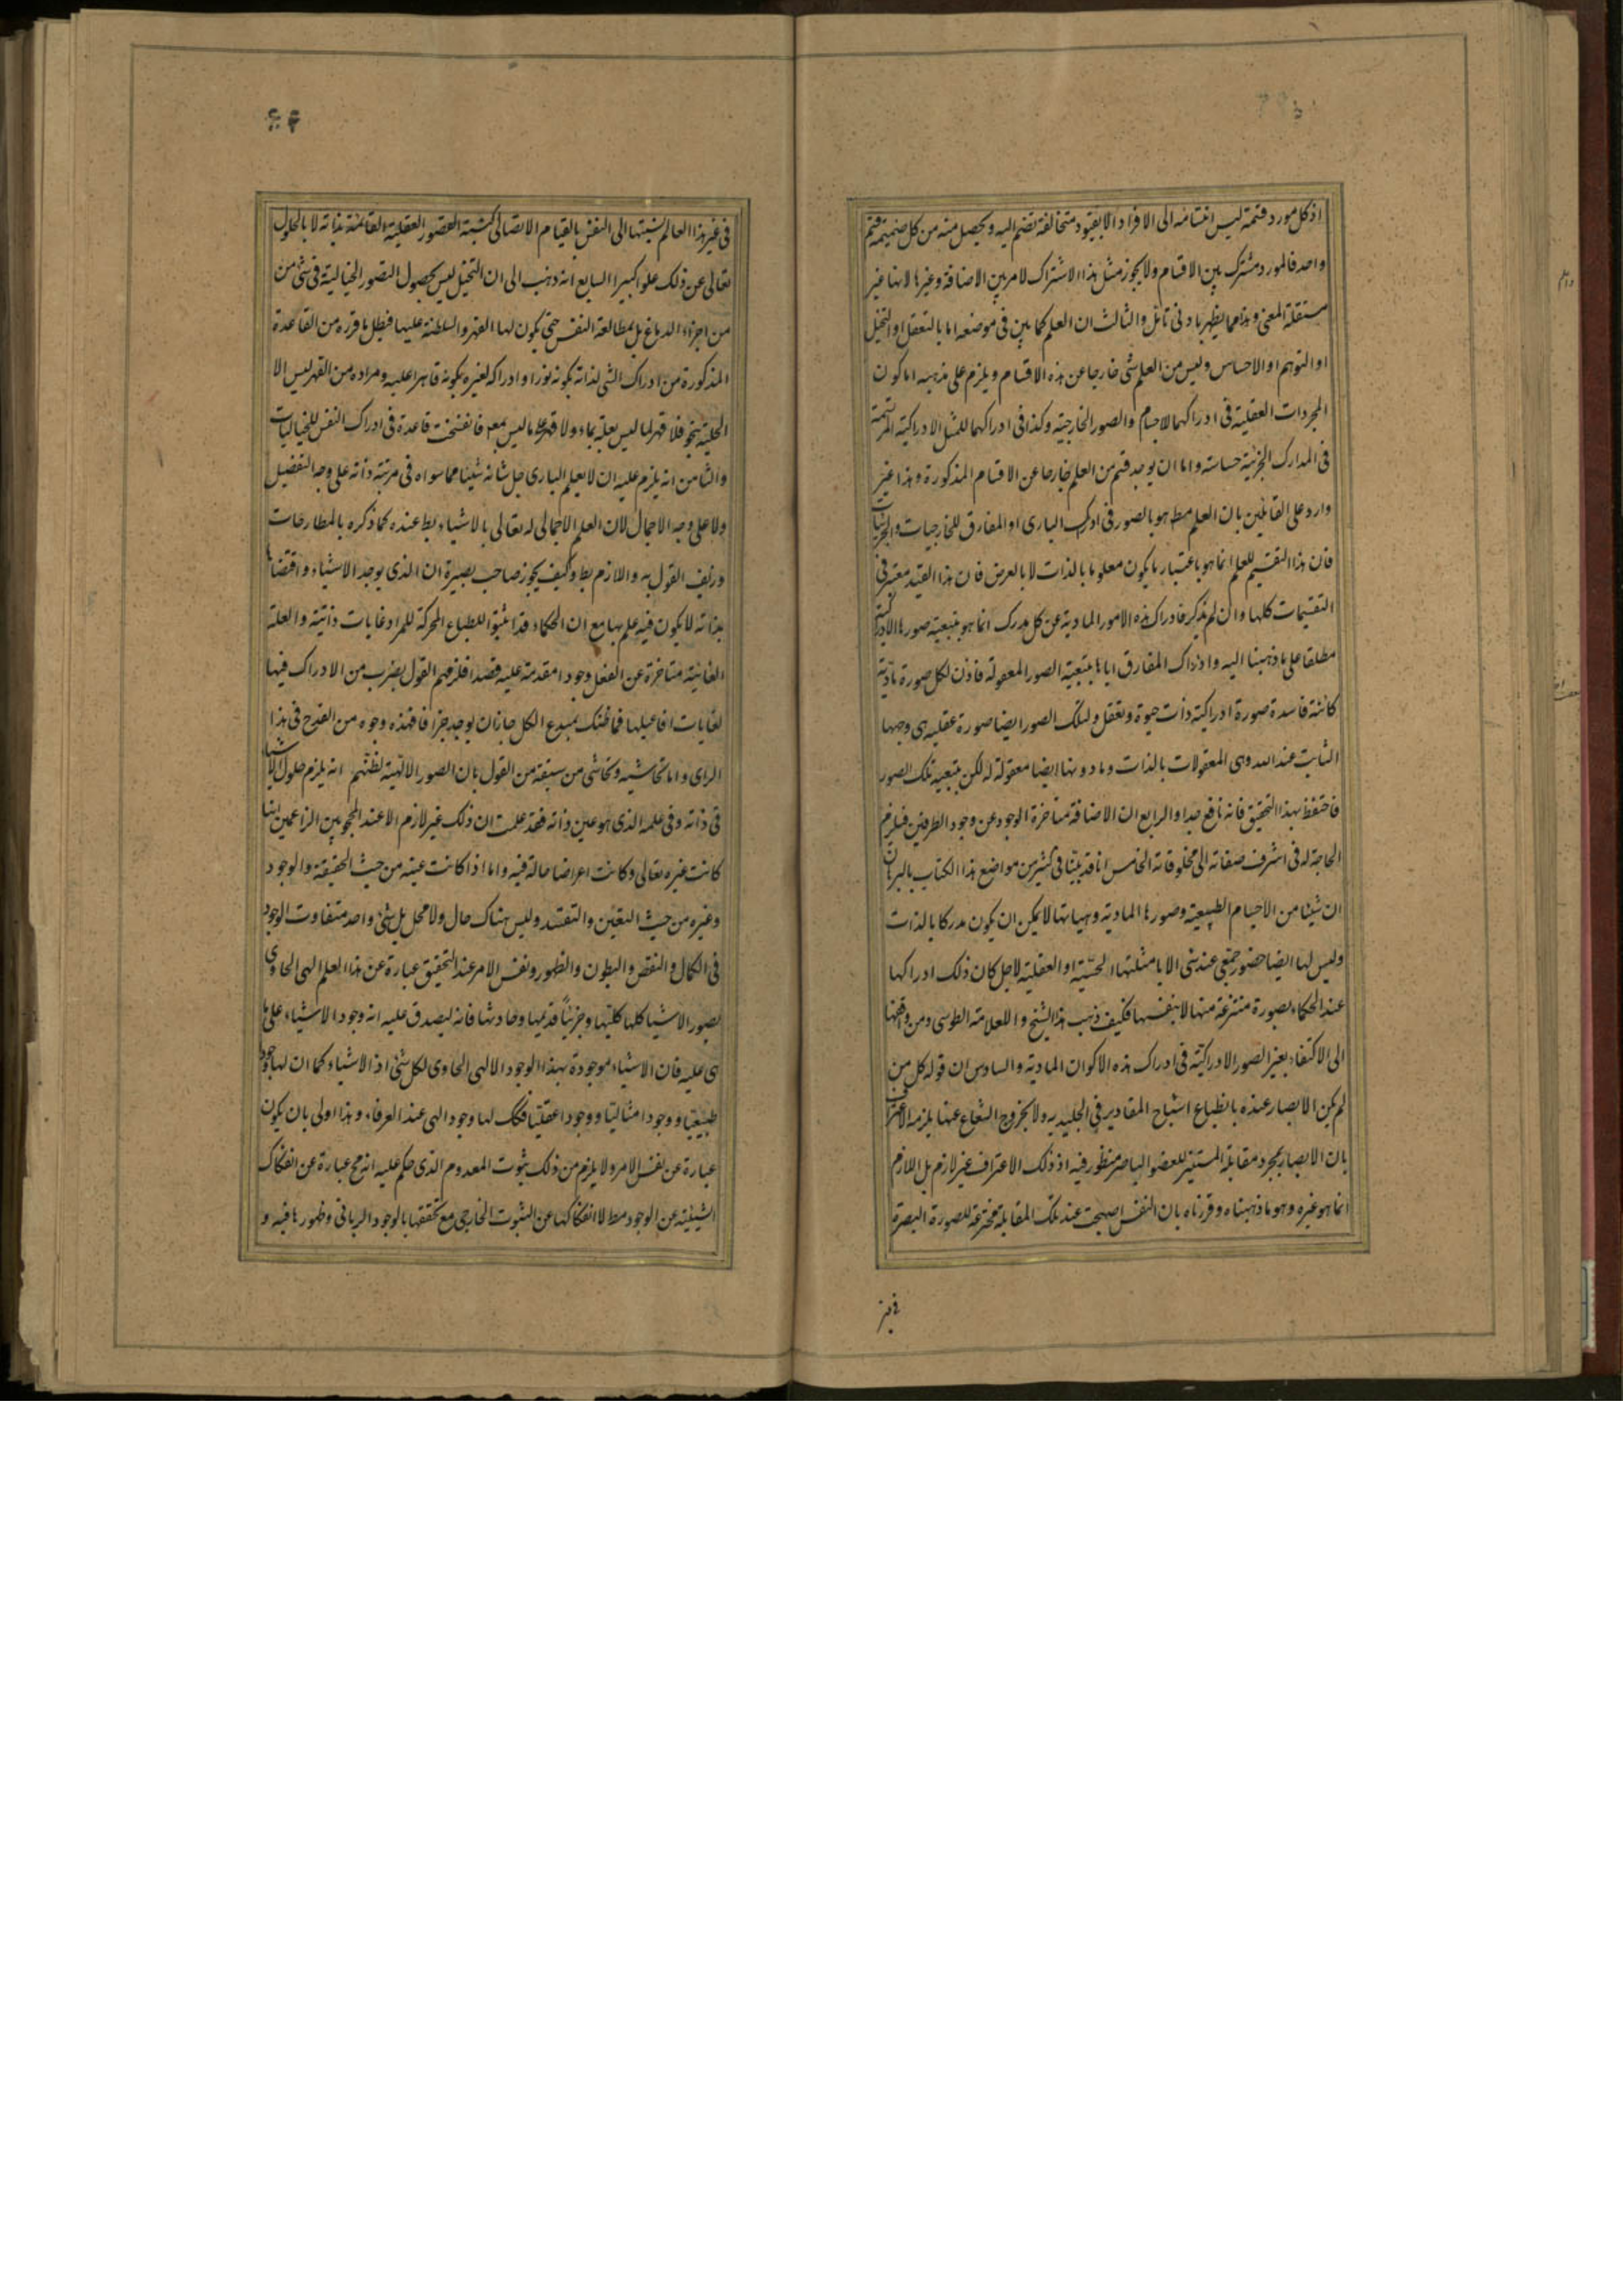 اذ كل مورد قسمة ليس انقسامه الى الافراد الا بقيود متخالفة تنضم اليه و يحصل منه من كل ضميمة قسم
واحد فالمورد مشترك بين الاقسام ولا يجوز مثل هذا الاشتراك لامر بين الاضافة وغيرها لانها غير
مستقلة المعنى وهذا مما يظهر بادنى تامل والثالث ان العلم كما بين فى موضعه اما بالتعقل او التخيل
او التوهم او الاحساس وليس من العلم شى خارجا عن هذه الاقسام ويلزم على مذهبه اما كون
المجردات العقلية فى ادراكها للاجسام والصور الخارجية وكذا فى ادراكها للمثل الادراكية المرتسمة
فى المدارك الجزئية حساسة واما ان يوجد قسم من العلم خارجا عن الاقسام المذكورة وهذا غير
وارد على القائلين بان العلم مط هو بالصور فى ادرك البارى او المفارق للخارجيات والجزئيات
فان هذا التقسيم للعلم انما هو باعتبار ما يكون معلوما بالذات لا بالعرض فان هذا القيد معتبر فى
التقسيمات كلها وان لم يذكر فادراك هذه الامور المادية عن كل مدرك انما هو بتبعية صورها الادراكية
مطلقا على ما ذهبنا اليه وادراك المفارق اياها بتبعية الصور المعقولة فاذن لكل صورة مادية
كائنة فاسدة صورة ادراكية ذات حيوة وتعقل ولتلك الصور ايضا صورة عقلية هى وجهها
الثابت عند الله وهى المعقولات بالذات وما دونها ايضا معقولة له لكن بتبعية تلك الصور
فاحتفظ بهذا التحقيق فانه نافع جدا والرابع ان الاضافة متاخرة الوجود عن وجود الطرفين فيلزم
الحاجة له فى اشرف صفاته الى مخلوقاته الخامس انا قد بيّنا فى كثير من مواضع هذا الكتاب بالبرهان
ان شيئا من الاجسام الطبيعية وصورها المادية وهيئاتها لا يمكن ان يكون مدركا بالذات
وليس لها ايضا حضور جمعى عند شى الا بامثلتها الحسّية او العقلية لاجل كان ذلك ادراكها
عند الحكماء بصورة منتزعة منها لا بنفسها فكيف ذهب هذا الشيخ و العلامة الطوسى ومن وافقهما
الى الاكتفاء بغير الصور الادراكيّة فى ادراك هذه الاكوان المادية والسادس ان قوله كل من
لم يكن الابصار عنده بانطباع اشباح المقادير فى الجليدية ولا بخروج الشعاع عنها يلزمه الاعتراف
بان الابصار بمجرد مقابلة المستنير للعضو الباصر منظور فيه اذ ذلك الاعتراف غير لازم بل اللازم
انما هو غيره وهو ما ذهبناه وقررناه بان النفس اصبحت عند تلك المقابلة مخترعة للصورة المبصرة
فى غير
فى غير هذا العالم نسبتها الى النفس بالقيام الاتصالى كنسبة الصور العقلية القائمة بذاته لا بالحلول
تعالى عن ذلك علوا كبيرا السابع انه ذهب الى ان التخيل ليس بحصول الصور الخيالية فى شئ من
من اجزاء الدماغ بل بمطالعة النفس حتى يكون لها القهر والسلطنة عليها فبطل ما قرره من القاعدة
المذكورة من ادراك الشى لذاته بكونه نورا و ادراكه لغيره بكونه قاهرا عليه ومراده من القهر ليس الا
العلية بنحو فلا قهر لما ليس بعلة بماء ولا قهر على ما ليس بمعم فانفسخت قاعدة فى ادراك النفس للخياليات
والثامن انه يلزم عليه ان لا يعلم البارى جل شانه شيئا مما سواه فى مرتبة ذاته على وجه التفصيل
ولا على وجه الاجمال لان العلم الاجمالى له تعالى بالاشياء بط عنده كما ذكره بالمطارحات
وزيف القول به واللازم بط وكيف يجوز صاحب بصيرة ان الذى يوجد الاشياء واقتضاها
بذاته لا يكون فيه علم بها مع ان الحكماء قد اثبتوا للطباع المحركة للمواد غايات ذاتية والعلة
الغائية متاخرة عن الفعل وجودا مقدمة عليه قصدا فلزمهم القول بضرب من الادراك فيها
لغايات افاعيلها فما ظنك بمبدع الكل جازان يوجد جزافا فهذه وجوه من القدح فى هذا
الراى واما تحاشيه وتحاشى من سبقه من القول بان الصور الالهّية لظنّهم انه يلزم حلول الاشياء
فى ذاته وفى علمه الذى هو عين ذاته فقد علمت ان ذلك غير لازم الا عند المحجوبين الزاعمين انها
كانت غيره تعالى وكانت اعراضا حالة فيه واما اذا كانت عينه من حيث الحقيقة والوجود
وغيره من حيث التعيّن والتقيّد وليس هناك حال ولا محل بل شئ واحد متفاوت الوجود
فى الكمال والنقص والبطون والظهور ونفس الامر عند التحقيق عبارة عن هذا العلم الهى الحاوى
بصور الاشيا كلها كليّها وجزئيّا قديمها وحادثها فانه ليصدق عليه انه وجود الاشياء على ما
هى عليه فان الاشياء موجودة بهذا الوجود الالهى الحاوى لكل شئ اذ الاشياء كما ان لها وجودا
طبيعيّا ووجودا مثاليّا ووجودا عقليّا فكك لها وجود الهى عند العرفاء وهذا اولى بان يكون
عبارة عن نفس الامر ولا يلزم من ذلك ثبوت المعدوم الذى حكم عليه انه مح عبارة عن انفكاك
الشيئية عن الوجود مط لا انفكاكها عن الثبوت الخارجى مع تحققها بالوجود الربانى وظهورها فيه و